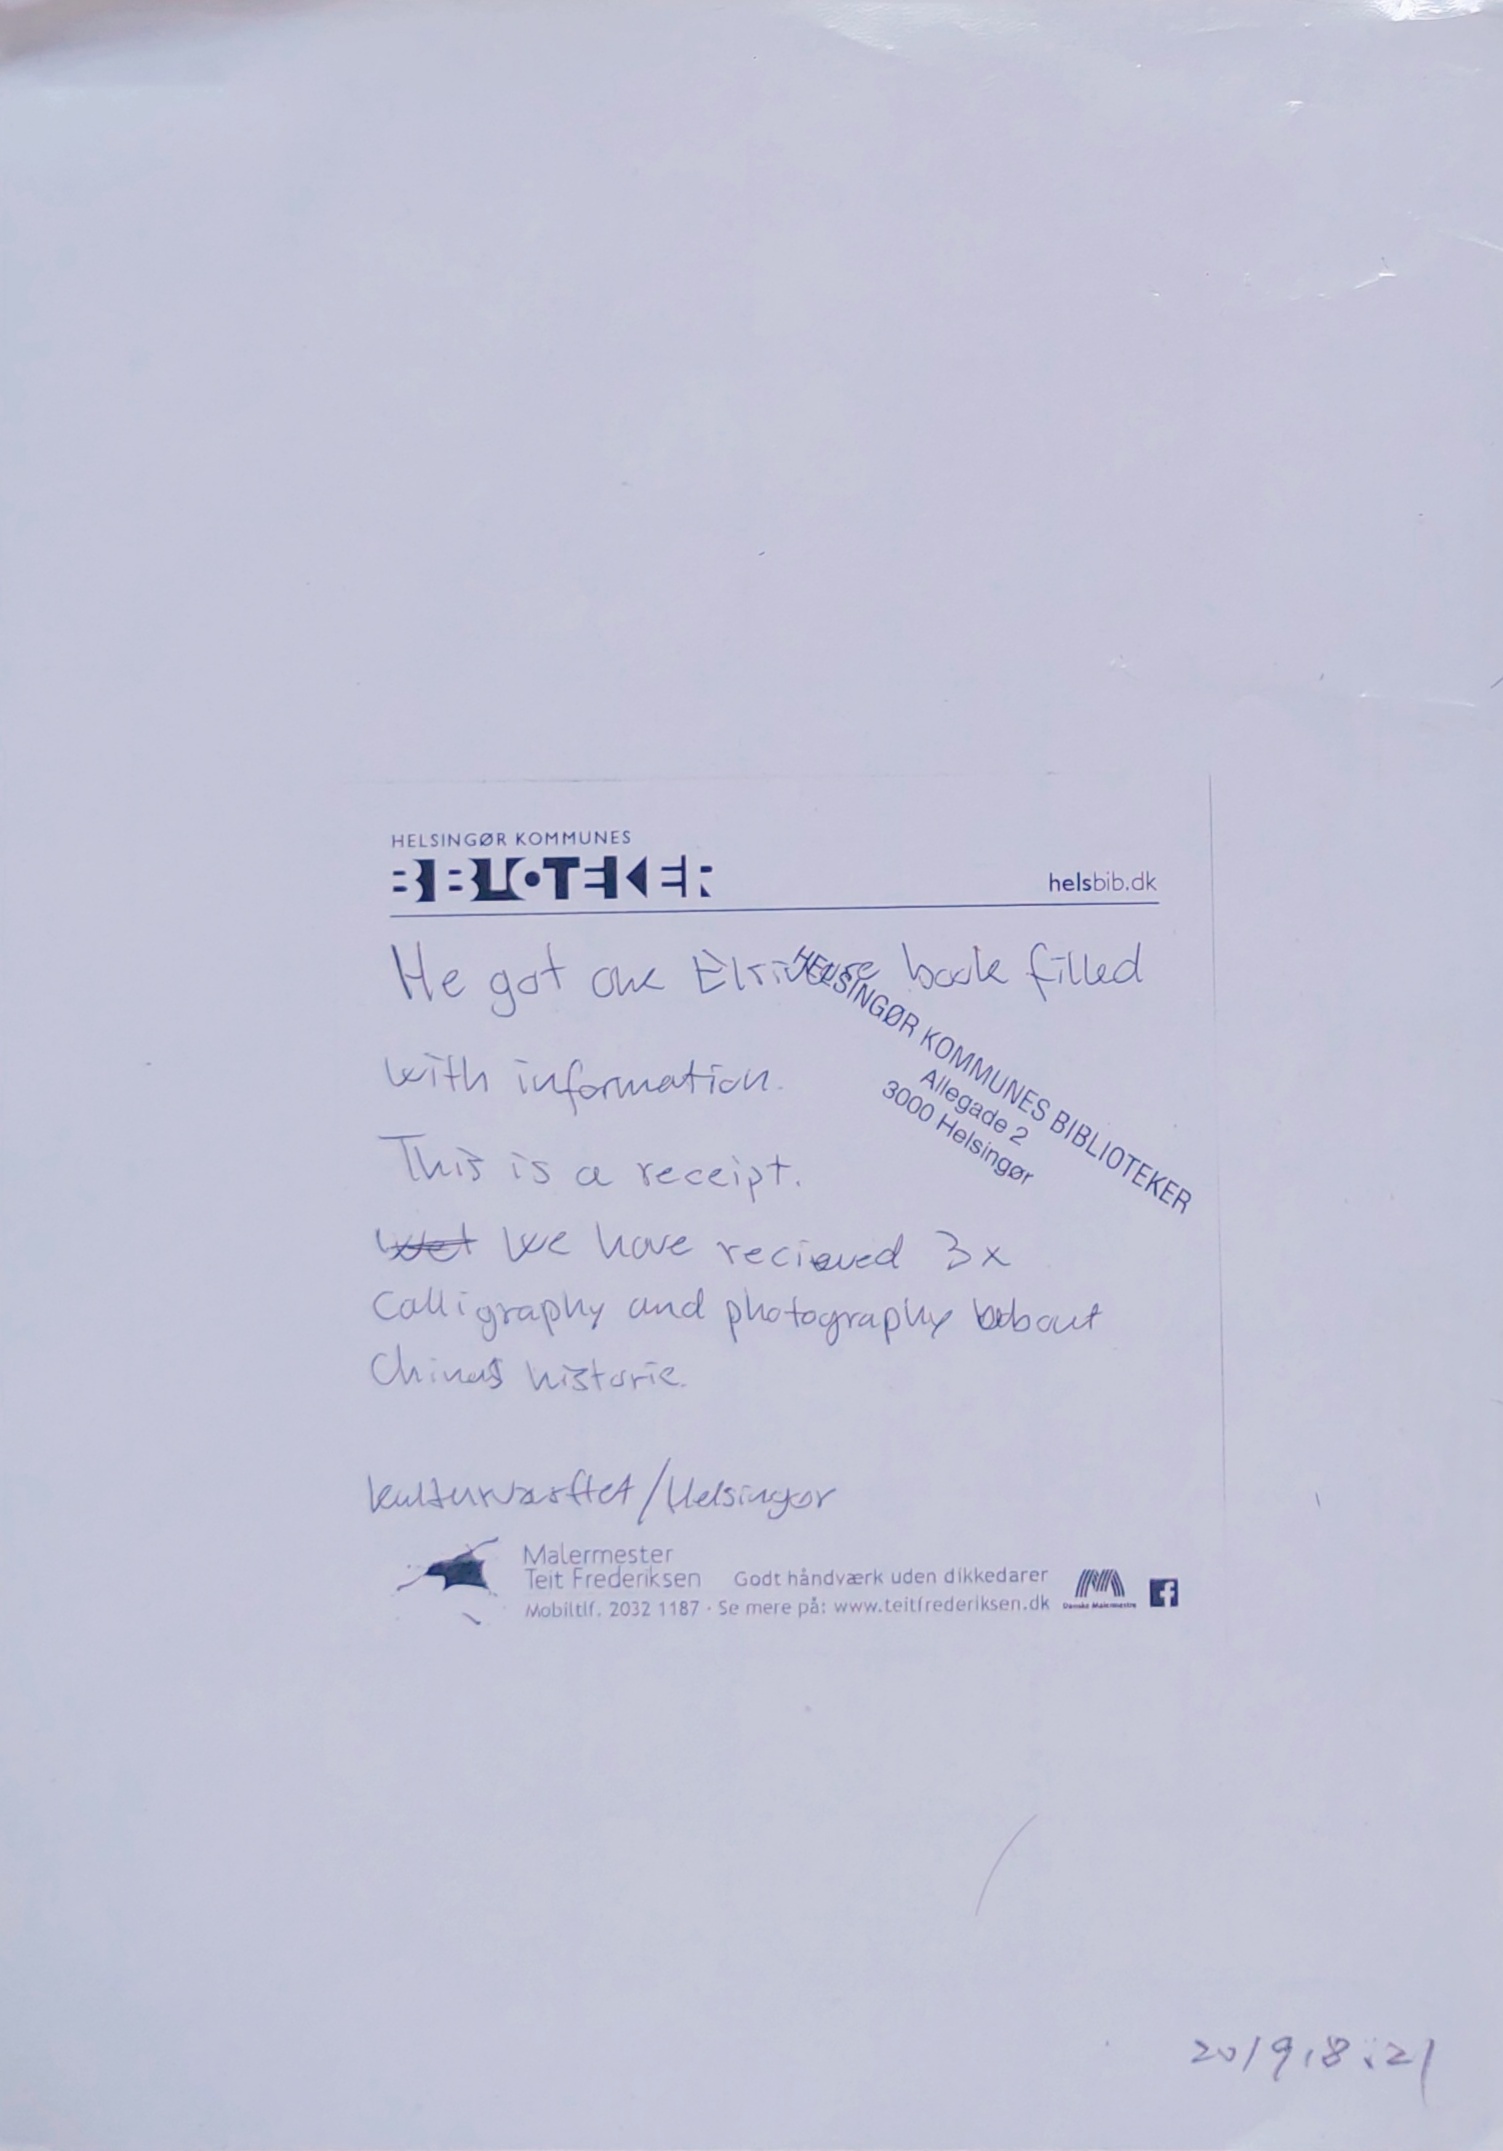 HELSINGØR KOMMUNES
BIBLIOTEKER
helsbib.dk
He got one book filled
with information.
This is a receipt.
We have recieved 3x
Calligraphy and photography about
Chinas historie.
HELSINGØR KOMMUNES BIBLIOTEKER
Allegade 2
3000 Helsingør
kulturværftet/Helsingør
Malermester
Teit Frederiksen Godt håndværk uden dikkedarer
Mobiltlf. 2032 1187 · Se mere på: www.teitfrederiksen.dk
Danske Malermestre
f
2019.8.21